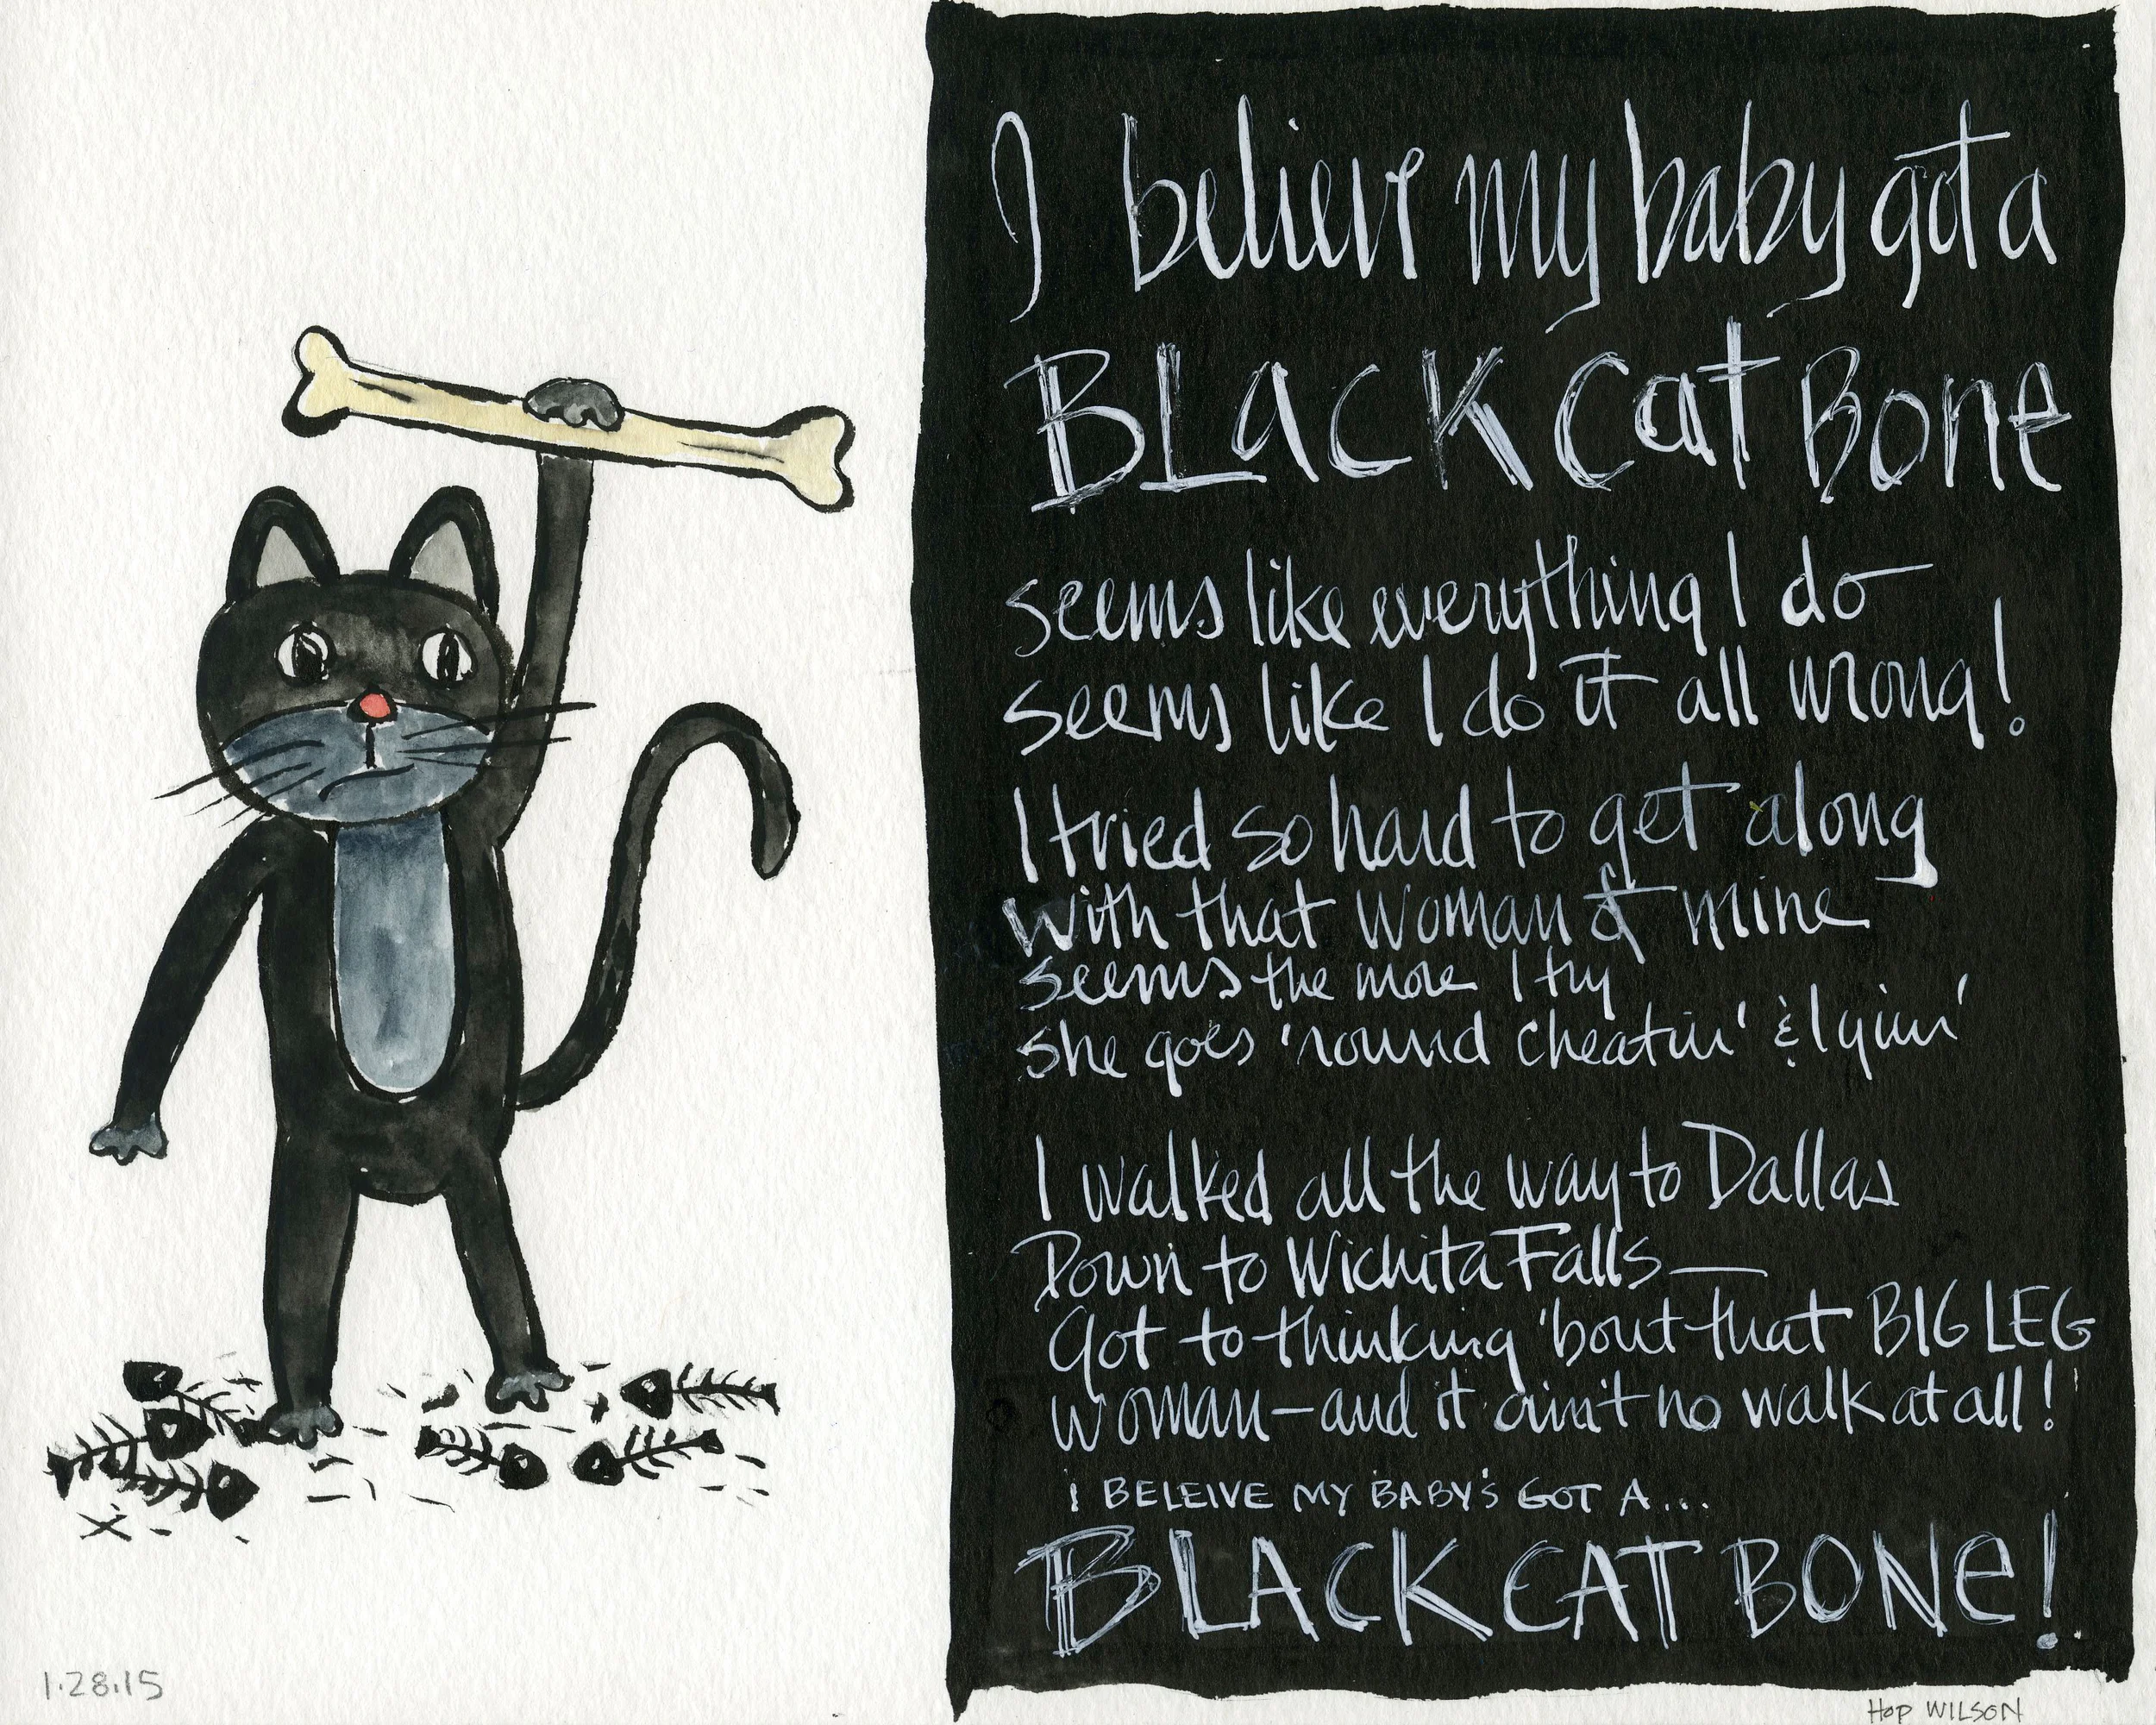 I believe my baby got a
BLack cat Bone
seems like everything I do
seems like I do it all wrong!
I tried so hard to get along
with that woman of mine
seems the more I try
she goes 'round cheatin' & lyin'
I walked all the way to Dallas
Down to Wichita Falls—
Got to thinking 'bout that BIG LEG
woman—and it ain't no walk at all!
I BELEIVE MY BABY'S GOT A...
BLACK CAT BONe!
1.28.15
Hop WILSON